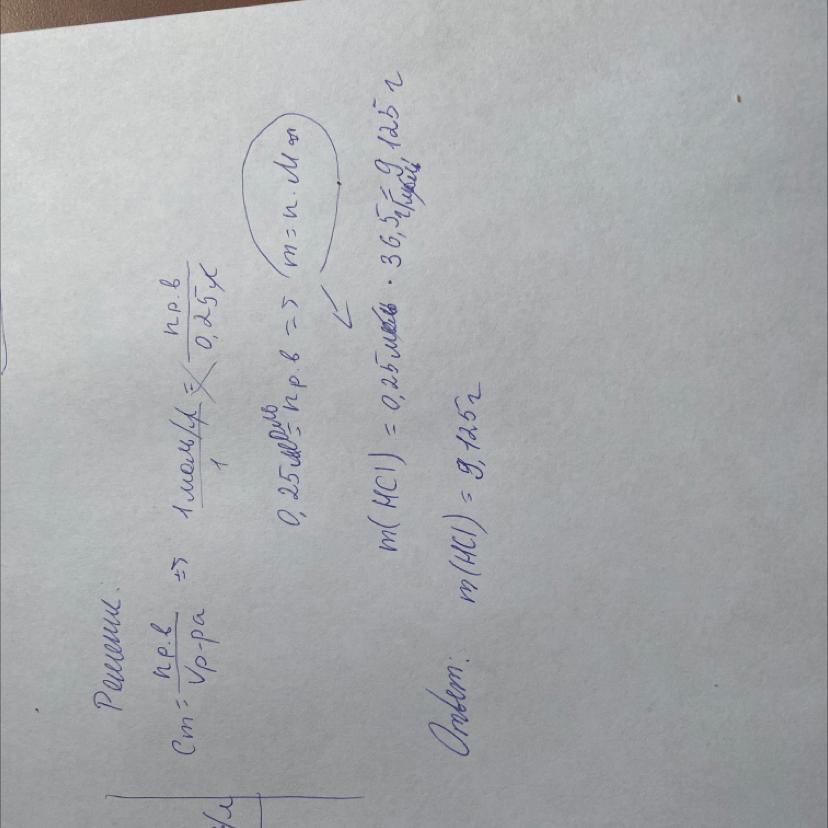 Решение.
Cm = nр.в / Vр-ра => 1 моль/л / 1 = nр.в / 0,25л
0,25 моль = nр.в => m = n · M
m(HCl) = 0,25 моль · 36,5 г/моль = 9,125 г
Ответ: m(HCl) = 9,125 г
/л